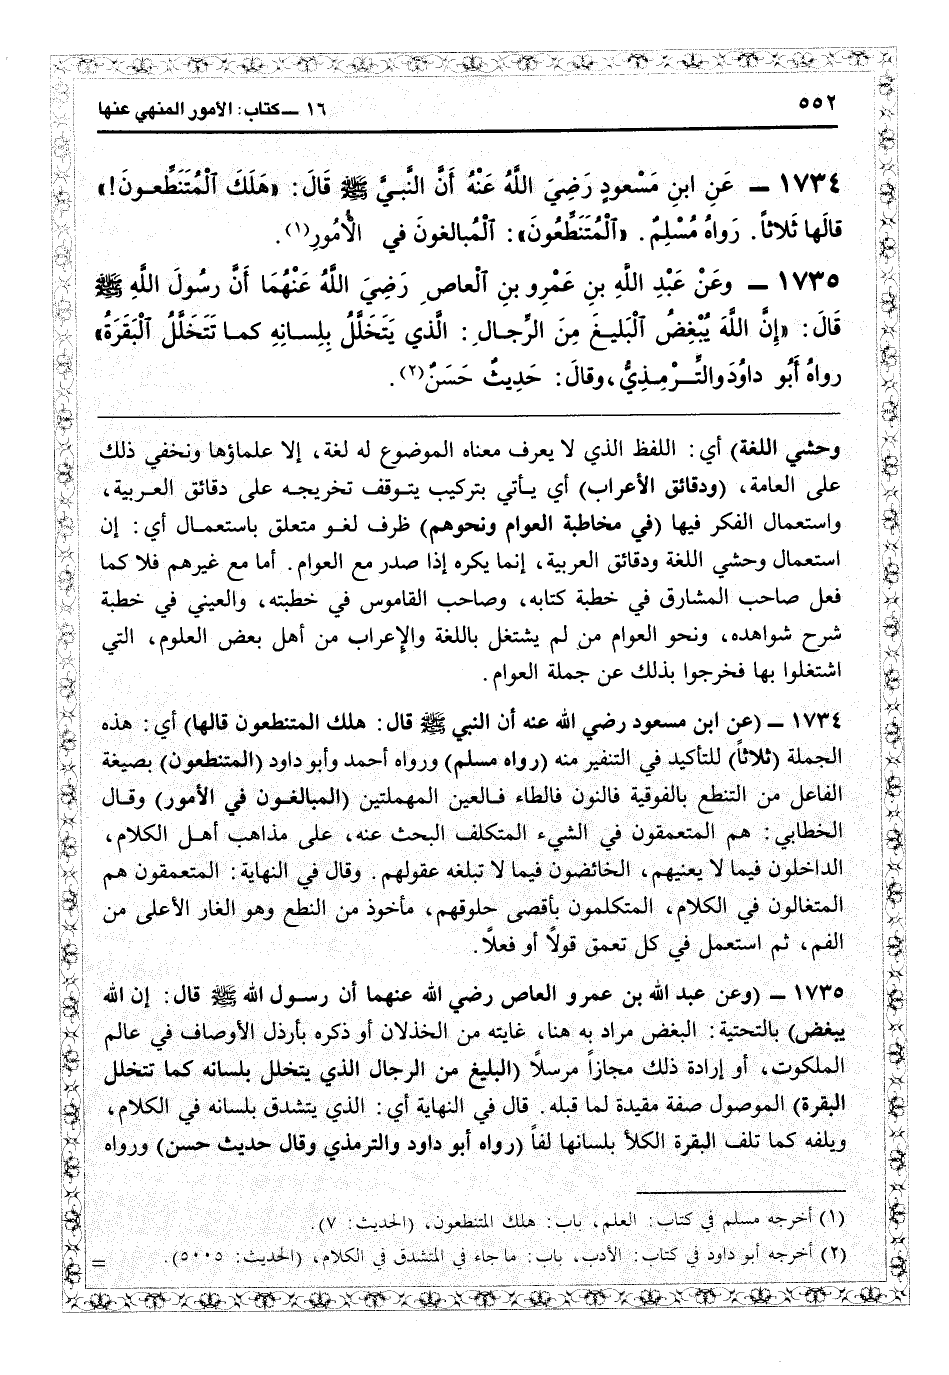 ٥٥٢
١٦ ـ كتاب: الأمور المنهي عنها
١٧٣٤ ـ عَنِ ابنِ مَسْعودٍ رَضِيَ اللَّهُ عَنْهُ أَنَّ النَّبيَّ ﷺ قَالَ: «هَلَكَ ٱلْمُتَنَطِّعونَ!»
قالَها ثَلاثاً. رَواهُ مُسْلِمٌ. «ٱلْمُتَنَطِّعُونَ»: ٱلْمُبالغونَ في الأُمُورِ(١).
١٧٣٥ ـ وعَنْ عَبْدِ اللَّهِ بنِ عَمْرِو بنِ ٱلْعاصِ رَضِيَ اللَّهُ عَنْهُمَا أَنَّ رسُولَ اللَّهِ ﷺ
قَالَ: «إنَّ اللَّهَ يُبْغِضُ ٱلْبَليغَ مِنَ الرِّجالِ: الَّذي يَتَخَلَّلُ بِلِسانِهِ كما تَتَخَلَّلُ ٱلْبَقَرَةُ»
رواهُ أَبُو داوُدَ والتِّرْمِذِيُّ، وقالَ: حَدِيثٌ حَسَنٌ(٢).
وحشي اللغة) أي: اللفظ الذي لا يعرف معناه الموضوع له لغة، إلا علماؤها ونخفي ذلك
على العامة، (ودقائق الأعراب) أي يأتي بتركيب يتوقف تخريجه على دقائق العربية،
واستعمال الفكر فيها (في مخاطبة العوام ونحوهم) ظرف لغو متعلق باستعمال أي: إن
استعمال وحشي اللغة ودقائق العربية، إنما يكره إذا صدر مع العوام. أما مع غيرهم فلا كما
فعل صاحب المشارق في خطبة كتابه، وصاحب القاموس في خطبته، والعيني في خطبة
شرح شواهده، ونحو العوام من لم يشتغل باللغة والإعراب من أهل بعض العلوم، التي
اشتغلوا بها فخرجوا بذلك عن جملة العوام.
١٧٣٤ ـ (عن ابن مسعود رضي الله عنه أن النبي ﷺ قال: هلك المتنطعون قالها) أي: هذه
الجملة (ثلاثاً) للتأكيد في التنفير منه (رواه مسلم) ورواه أحمد وأبو داود (المتنطعون) بصيغة
الفاعل من التنطع بالفوقية فالنون فالطاء فالعين المهملتين (المبالغون في الأمور) وقال
الخطابي: هم المتعمقون في الشيء المتكلف البحث عنه، على مذاهب أهل الكلام،
الداخلون فيما لا يعنيهم، الخائضون فيما لا تبلغه عقولهم. وقال في النهاية: المتعمقون هم
المتغالون في الكلام، المتكلمون بأقصى حلوقهم، مأخوذ من النطع وهو الغار الأعلى من
الفم، ثم استعمل في كل تعمق قولاً أو فعلاً.
١٧٣٥ ـ (وعن عبد الله بن عمرو العاص رضي الله عنهما أن رسول الله ﷺ قال: إن الله
يبغض) بالتحتية: البغض مراد به هنا، غايته من الخذلان أو ذكره بأرذل الأوصاف في عالم
الملكوت، أو إرادة ذلك مجازاً مرسلاً (البليغ من الرجال الذي يتخلل بلسانه كما تتخلل
البقرة) الموصول صفة مقيدة لما قبله. قال في النهاية أي: الذي يتشدق بلسانه في الكلام،
ويلفه كما تلف البقرة الكلأ بلسانها لفاً (رواه أبو داود والترمذي وقال حديث حسن) ورواه
(١) أخرجه مسلم في كتاب: العلم، باب: هلك المتنطعون، (الحديث: ٧).
(٢) أخرجه أبو داود في كتاب: الأدب، باب: ما جاء في المتشدق في الكلام، (الحديث: ٥٠٠٥). =